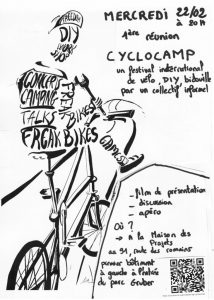 MERCREDI 22/02
à 20H
1ère réunion
CYCLOCAMP
un festival international
de vélo, DIY, bidouille
par un collectif informel
DIY
CONCEPT
CAMPING
TALKS
FREAK BIKES
BIKES
- film de présentation
- discussion
- apéro
Où ?
→ à la Maison des
Projets
au 91, route des romains
premier bâtiment
à gauche à l'entrée
du parc Gruber